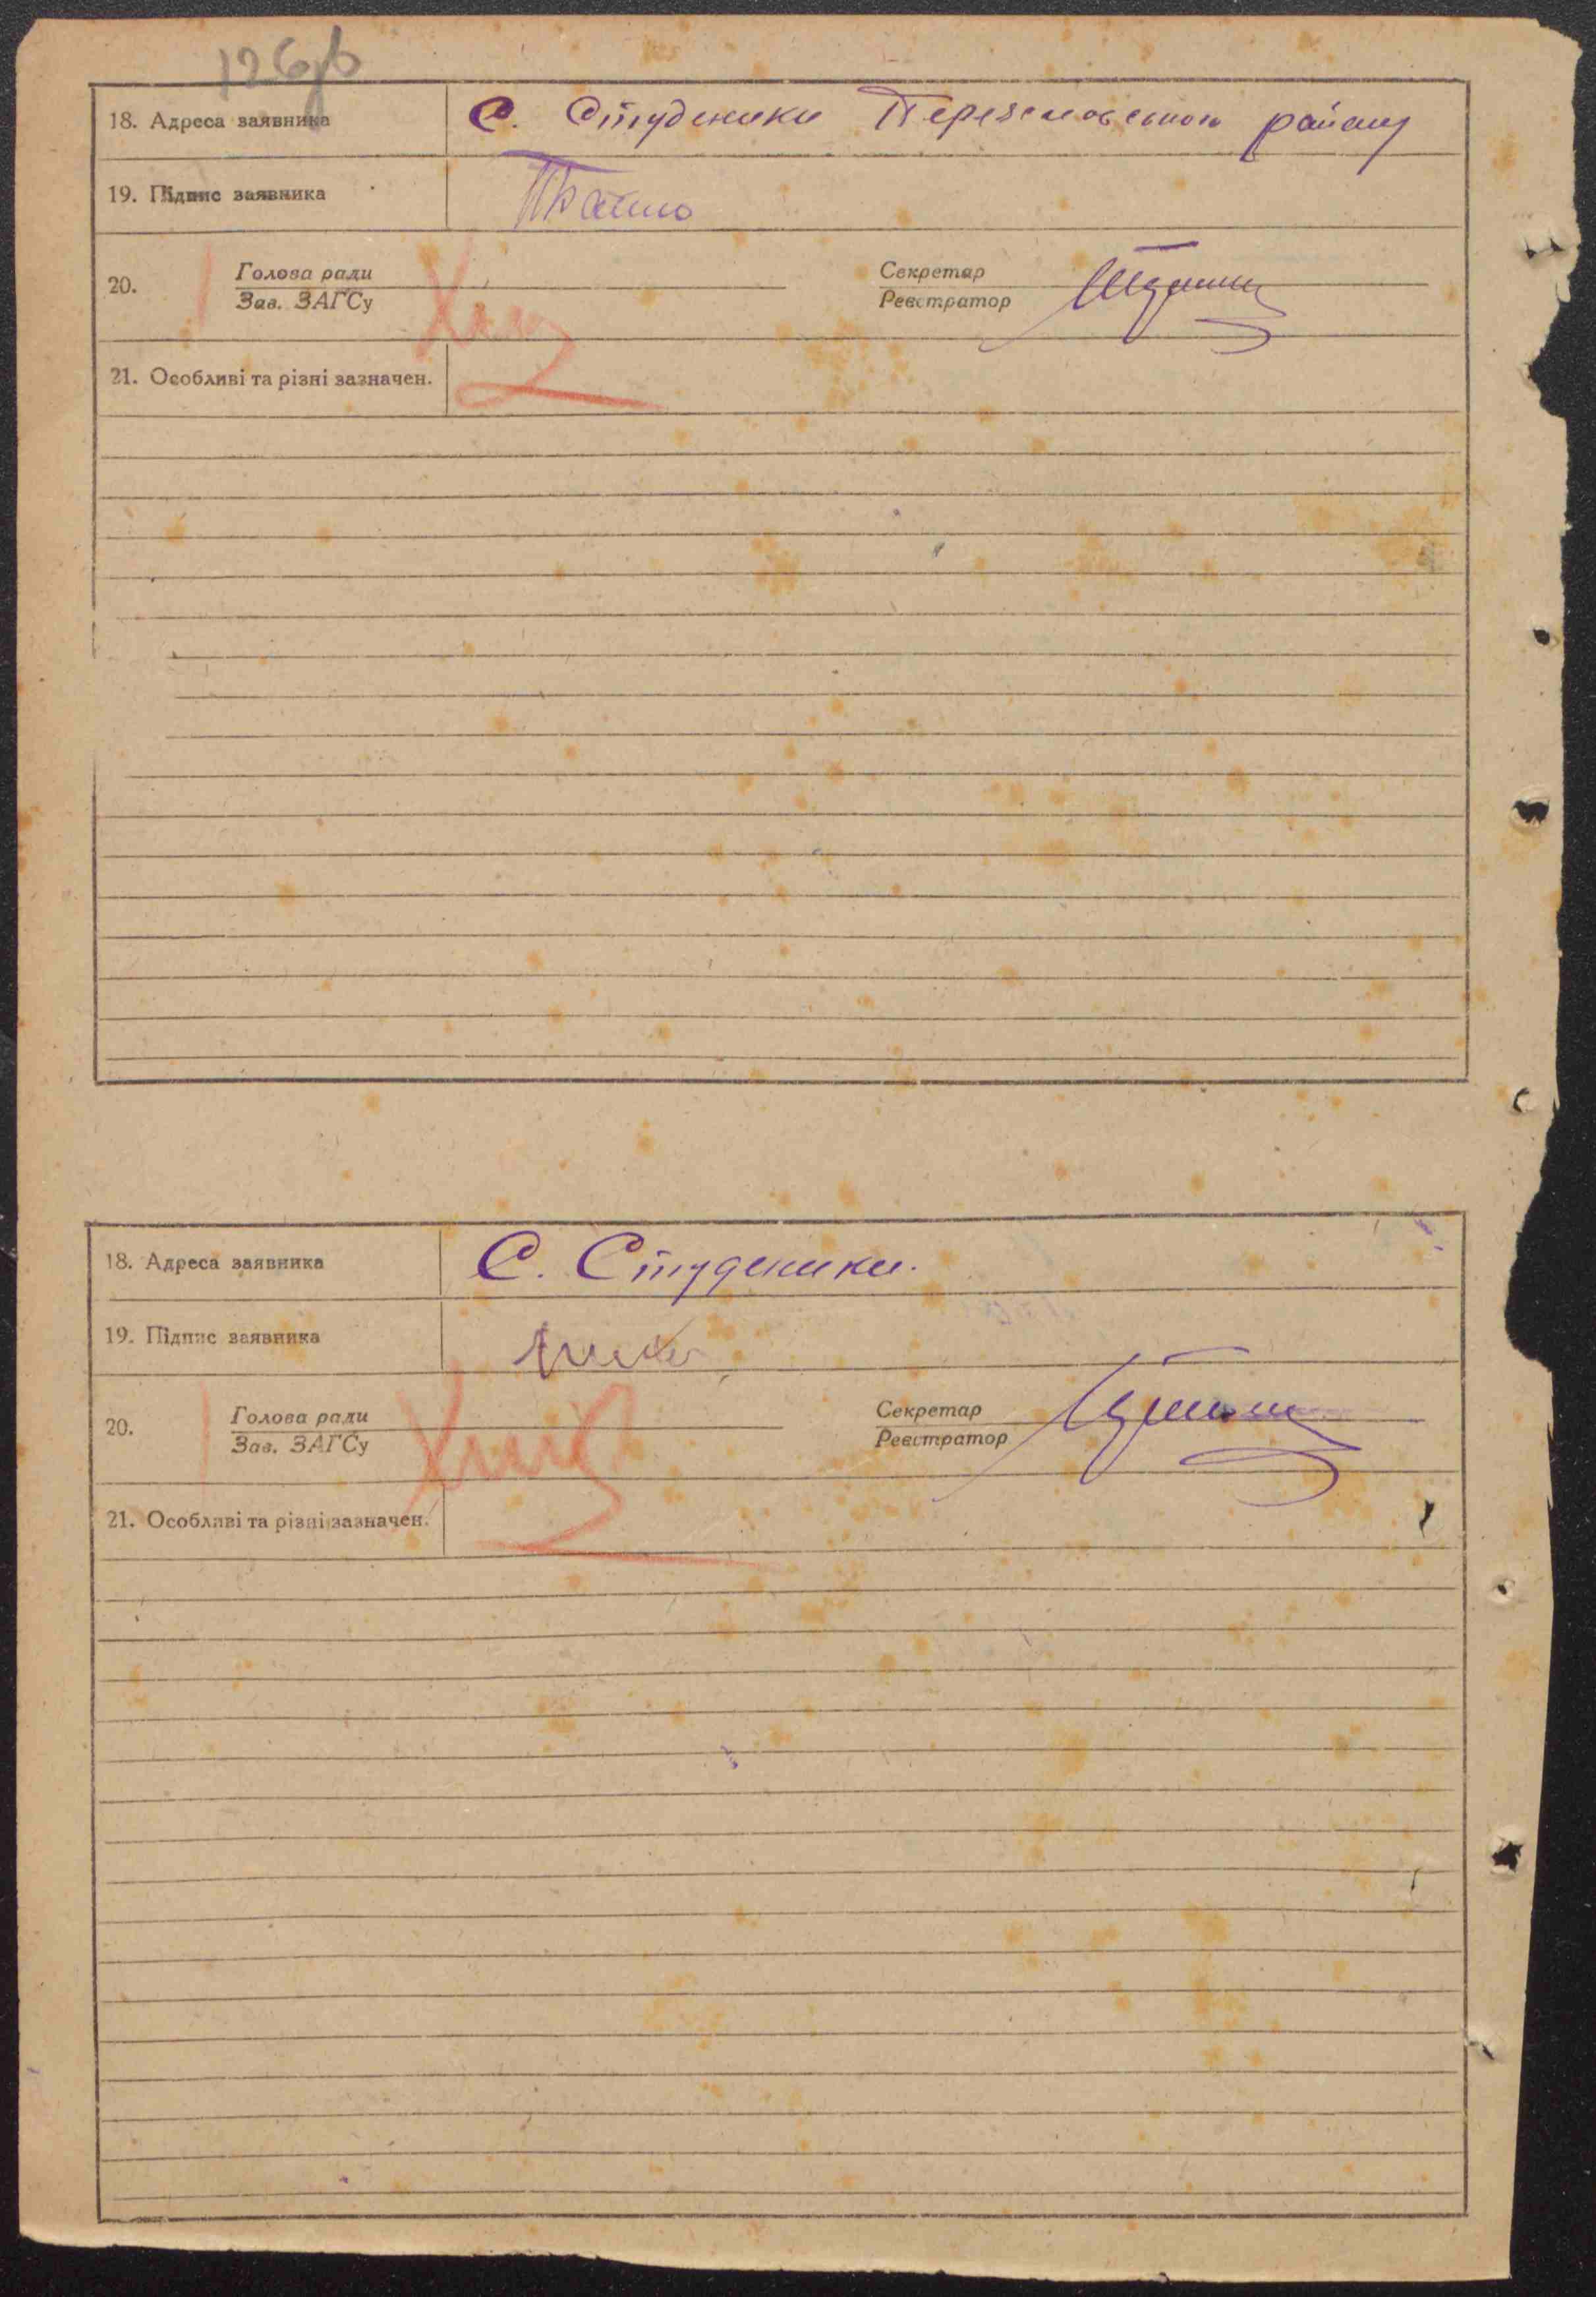 126зв
18. Адреса заявника С. Студеники Переяславського району
19. Підпис заявника
20. Голова ради Секретар
Зав. ЗАГСу Реєстратор
21. Особливі та різні зазначен.
18. Адреса заявника С. Студеники.
19. Підпис заявника
20. Голова ради Секретар
Зав. ЗАГСу Реєстратор
21. Особливі та різні зазначен.